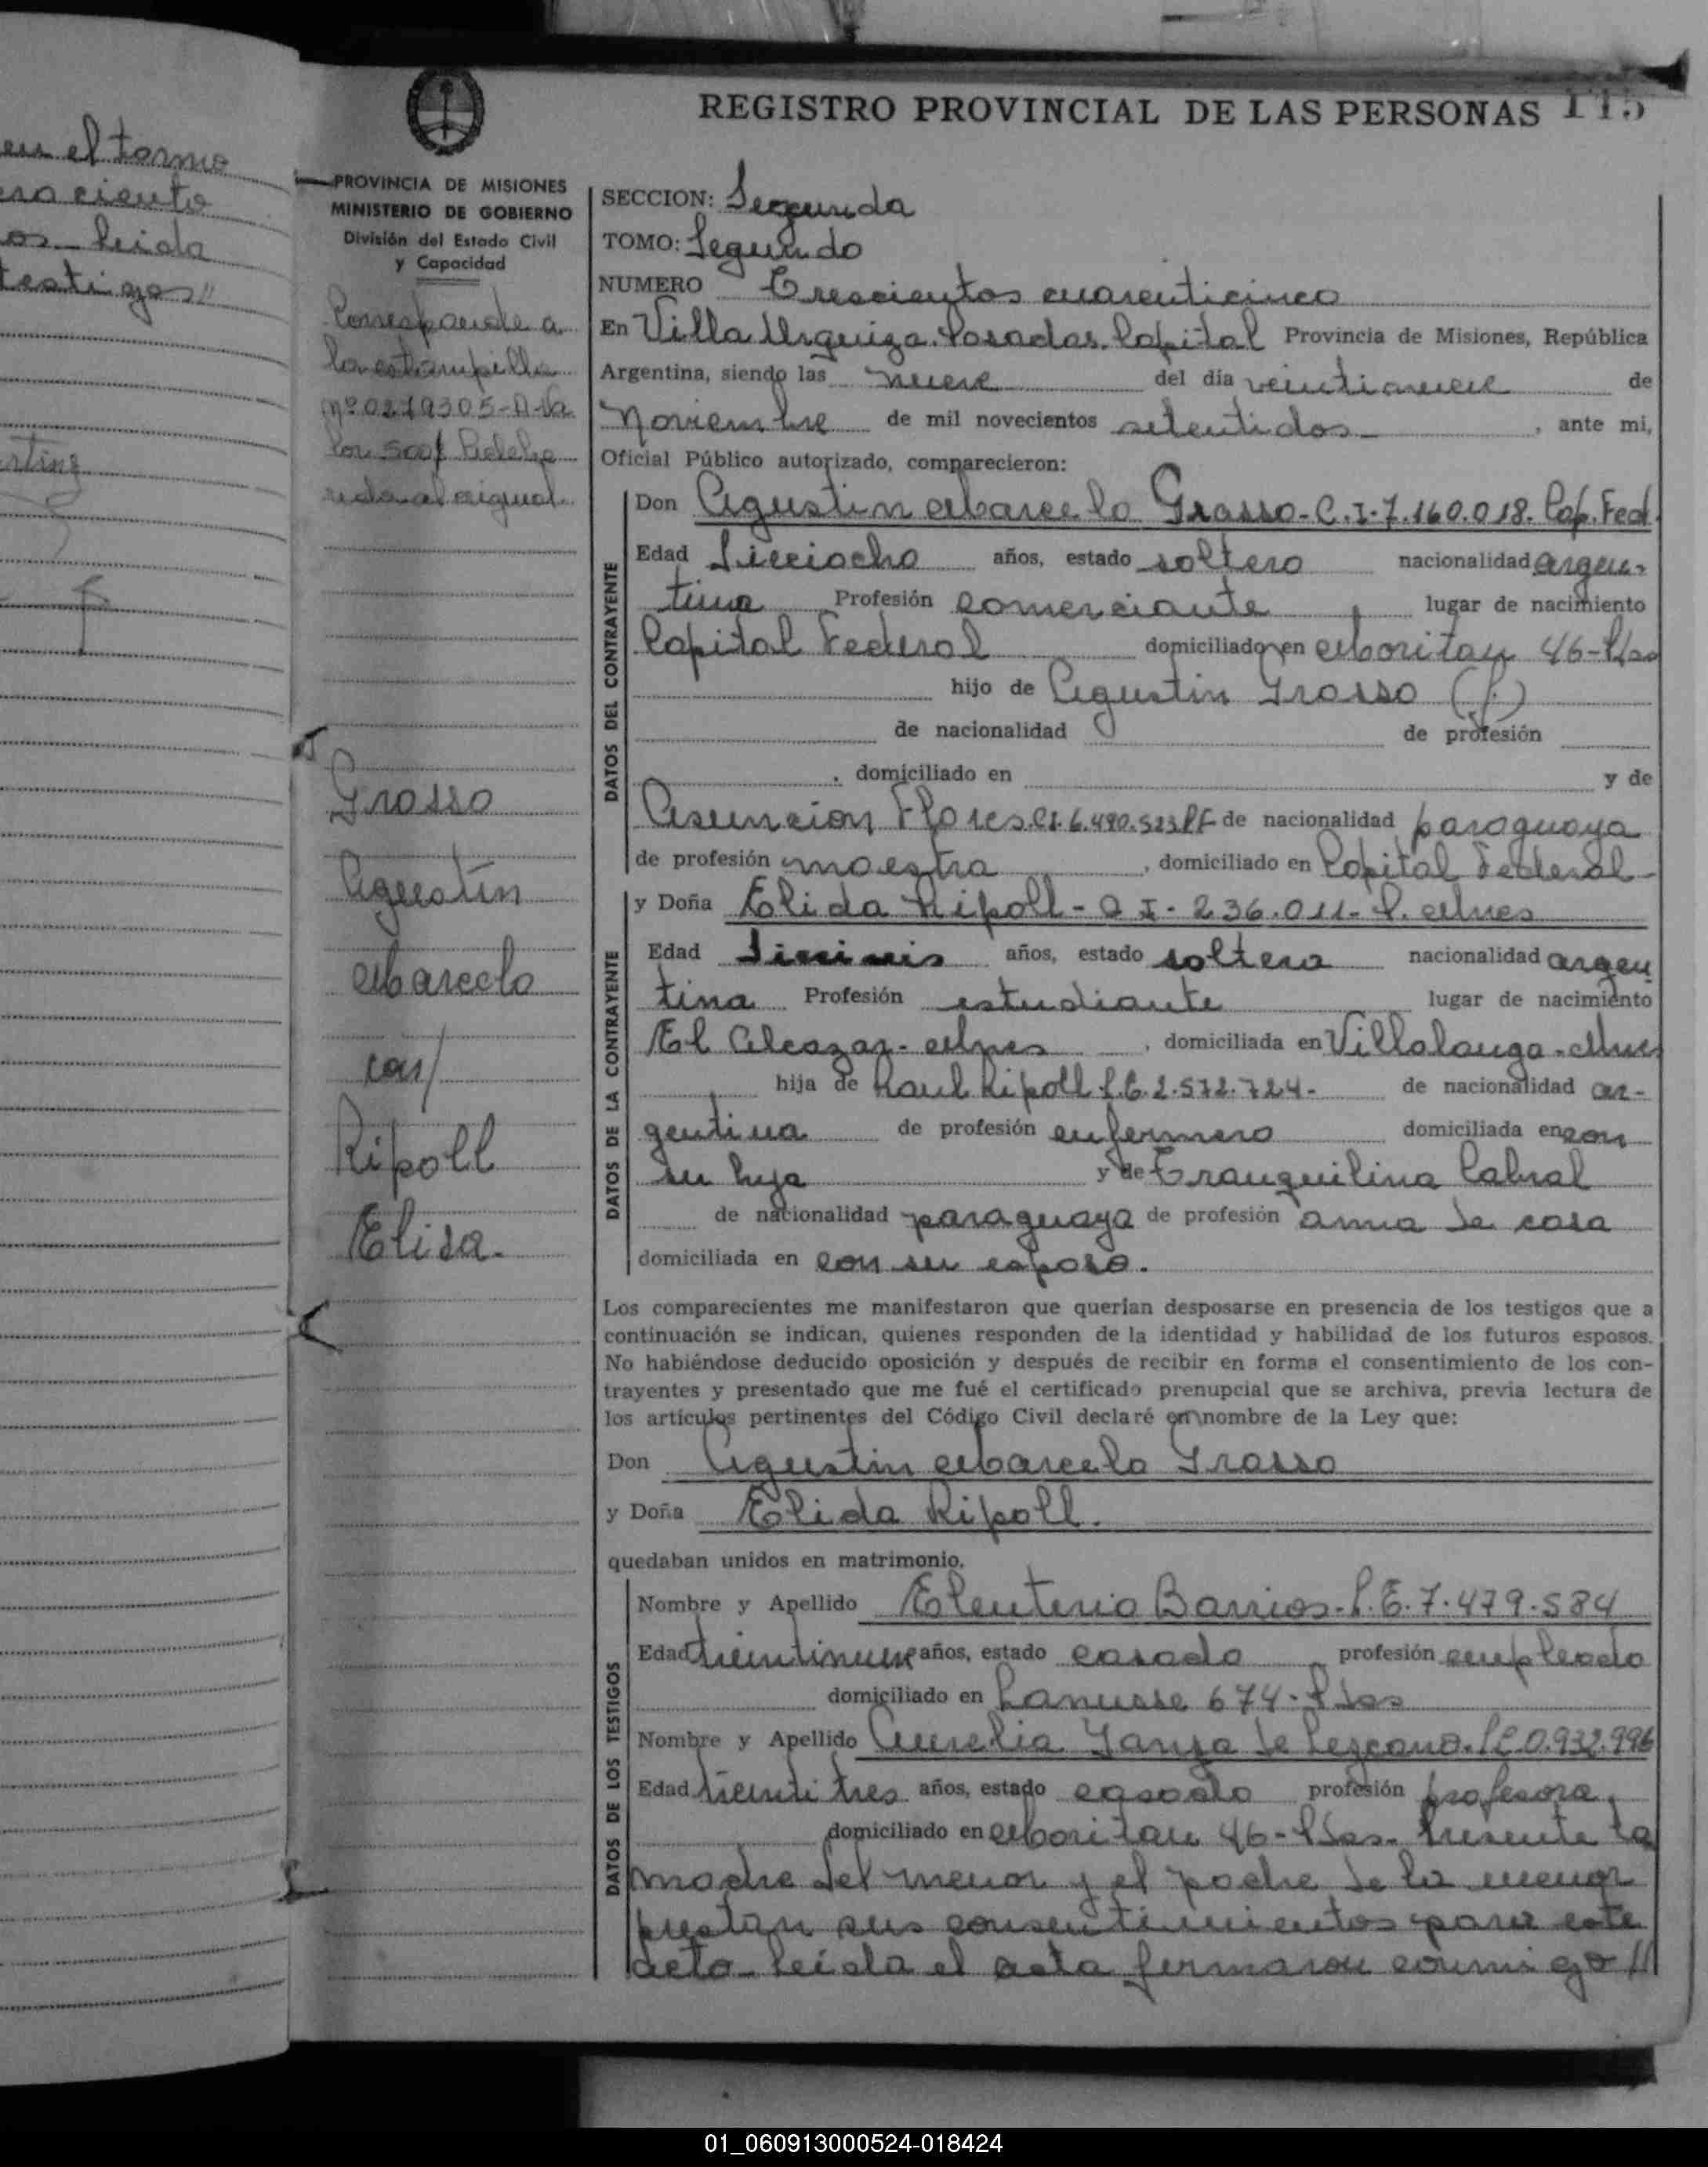 en el tomo
ciento
os leida
testigos//
REGISTRO PROVINCIAL DE LAS PERSONAS 115
PROVINCIA DE MISIONES
MINISTERIO DE GOBIERNO
División del Estado Civil
y Capacidad
Corresponde a
la estampilla
Nº 0279305-A-Va
por 500$
al original
Grosso
Agustín
Marcelo
con/
Ripoll
Elisa.
SECCION: Segunda
TOMO: Segundo
NUMERO Trescientos cuarenticinco
En Villa Urquiza. Posadas. Capital Provincia de Misiones, República
Argentina, siendo las nueve del día veintinueve de
Noviembre de mil novecientos setentidos , ante mi,
Oficial Público autorizado, comparecieron:
DATOS DEL CONTRAYENTE
Don Agustin Marcelo Grasso- C.I-7.160.018. Cap. Fed.
Edad Dieciocho años, estado soltero nacionalidad argen-
tina Profesión comerciante lugar de nacimiento
Capital Federal domiciliado en Moritan 46-Pdas
hijo de Agustin Grosso (f.)
de nacionalidad de profesión
, domiciliado en y de
Asuncion Flores.CI.6.490.523 PF de nacionalidad paraguaya
de profesión maestra , domiciliado en Capital Federal-
DATOS DE LA CONTRAYENTE
y Doña Elida Ripoll- C I- 236.011- P. Mnes
Edad años, estado soltera nacionalidad argen
tina Profesión estudiante lugar de nacimiento
El Alcazar- Mnes , domiciliada en Villalonga- Mnes
hija de Raul Ripoll L.E.2.572.724- de nacionalidad ar-
gentina de profesión enfermero domiciliada en con
su hija y de Tranquilina Cabral
de nacionalidad paraguaya de profesión ama de casa
domiciliada en con su esposo.
Los comparecientes me manifestaron que querían desposarse en presencia de los testigos que a
continuación se indican, quienes responden de la identidad y habilidad de los futuros esposos.
No habiéndose deducido oposición y después de recibir en forma el consentimiento de los con-
trayentes y presentado que me fué el certificado prenupcial que se archiva, previa lectura de
los artículos pertinentes del Código Civil declaré en nombre de la Ley que:
Don Agustin Marcelo Grasso
y Doña Elida Ripoll.
quedaban unidos en matrimonio.
DATOS DE LOS TESTIGOS
Nombre y Apellido Eleuterio Barrios- L.E.7.479.584
Edad treintinueve años, estado casado profesión empleado
domiciliado en Lanusse 674- Pdas
Nombre y Apellido Aurelia de Lezcano. LC 0.932.996
Edad treinti tres años, estado casado profesión profesora,
domiciliado en Moritan 46- Pdas- Presente la
madre del menor y el padre de la menor
prestan sus consentimientos para este
acto- leída el acta firmaron conmigo //
01_060913000524-018424